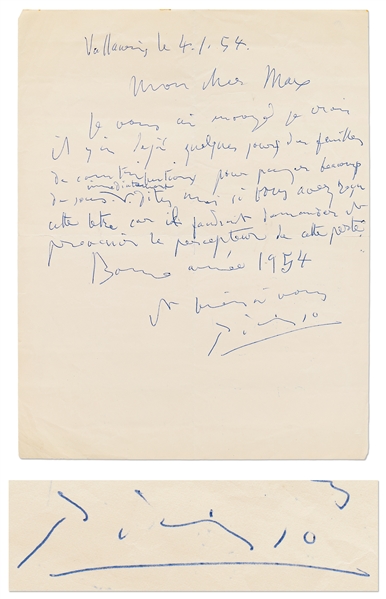 Vallauris le 4.1.54.
Mon cher Max
Je vous ai envoyé je crois
il y a déjà quelques jours des feuilles
de contributions pour payer beaucoup
immédiatement
de sous. dites moi si vous avez reçu
cette lettre car il faudrait demander et
prévenir le percepteur de cette perte
Bonne année 1954
et bien à vous
Picasso
Picasso